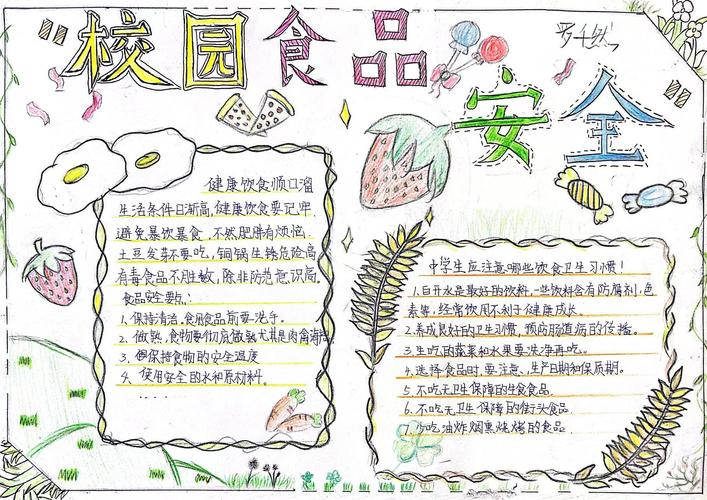 校园食品
安全
健康饮食顺口溜
生活条件日渐高,健康饮食要记牢.
避免暴饮暴食,不然肥胖有烦恼.
土豆发芽不要吃,铜锅生锈危险高.
有毒食品不胜数,除非防范意识高.
食品安全要点:
1.保持清洁,食用食品前要洗手。
2.做熟,食物要彻底做熟尤其是肉禽海
3.保持食物的安全温度
4.使用安全的水和原材料。
......
中学生应注意哪些饮食卫生习惯!
1.白开水是最好的饮料,一些饮料含有防腐剂,色
素等,经常饮用不利于健康成长。
2.养成良好的卫生习惯,预防肠道病的传播。
3.生吃的蔬菜和水果要洗净再吃。
4.选择食品时,要注意,生产日期和保质期。
5.不吃无卫生保障的生食食品.
6.不吃无卫生保障的街头食品.
7.少吃油炸烟熏烧烤的食品